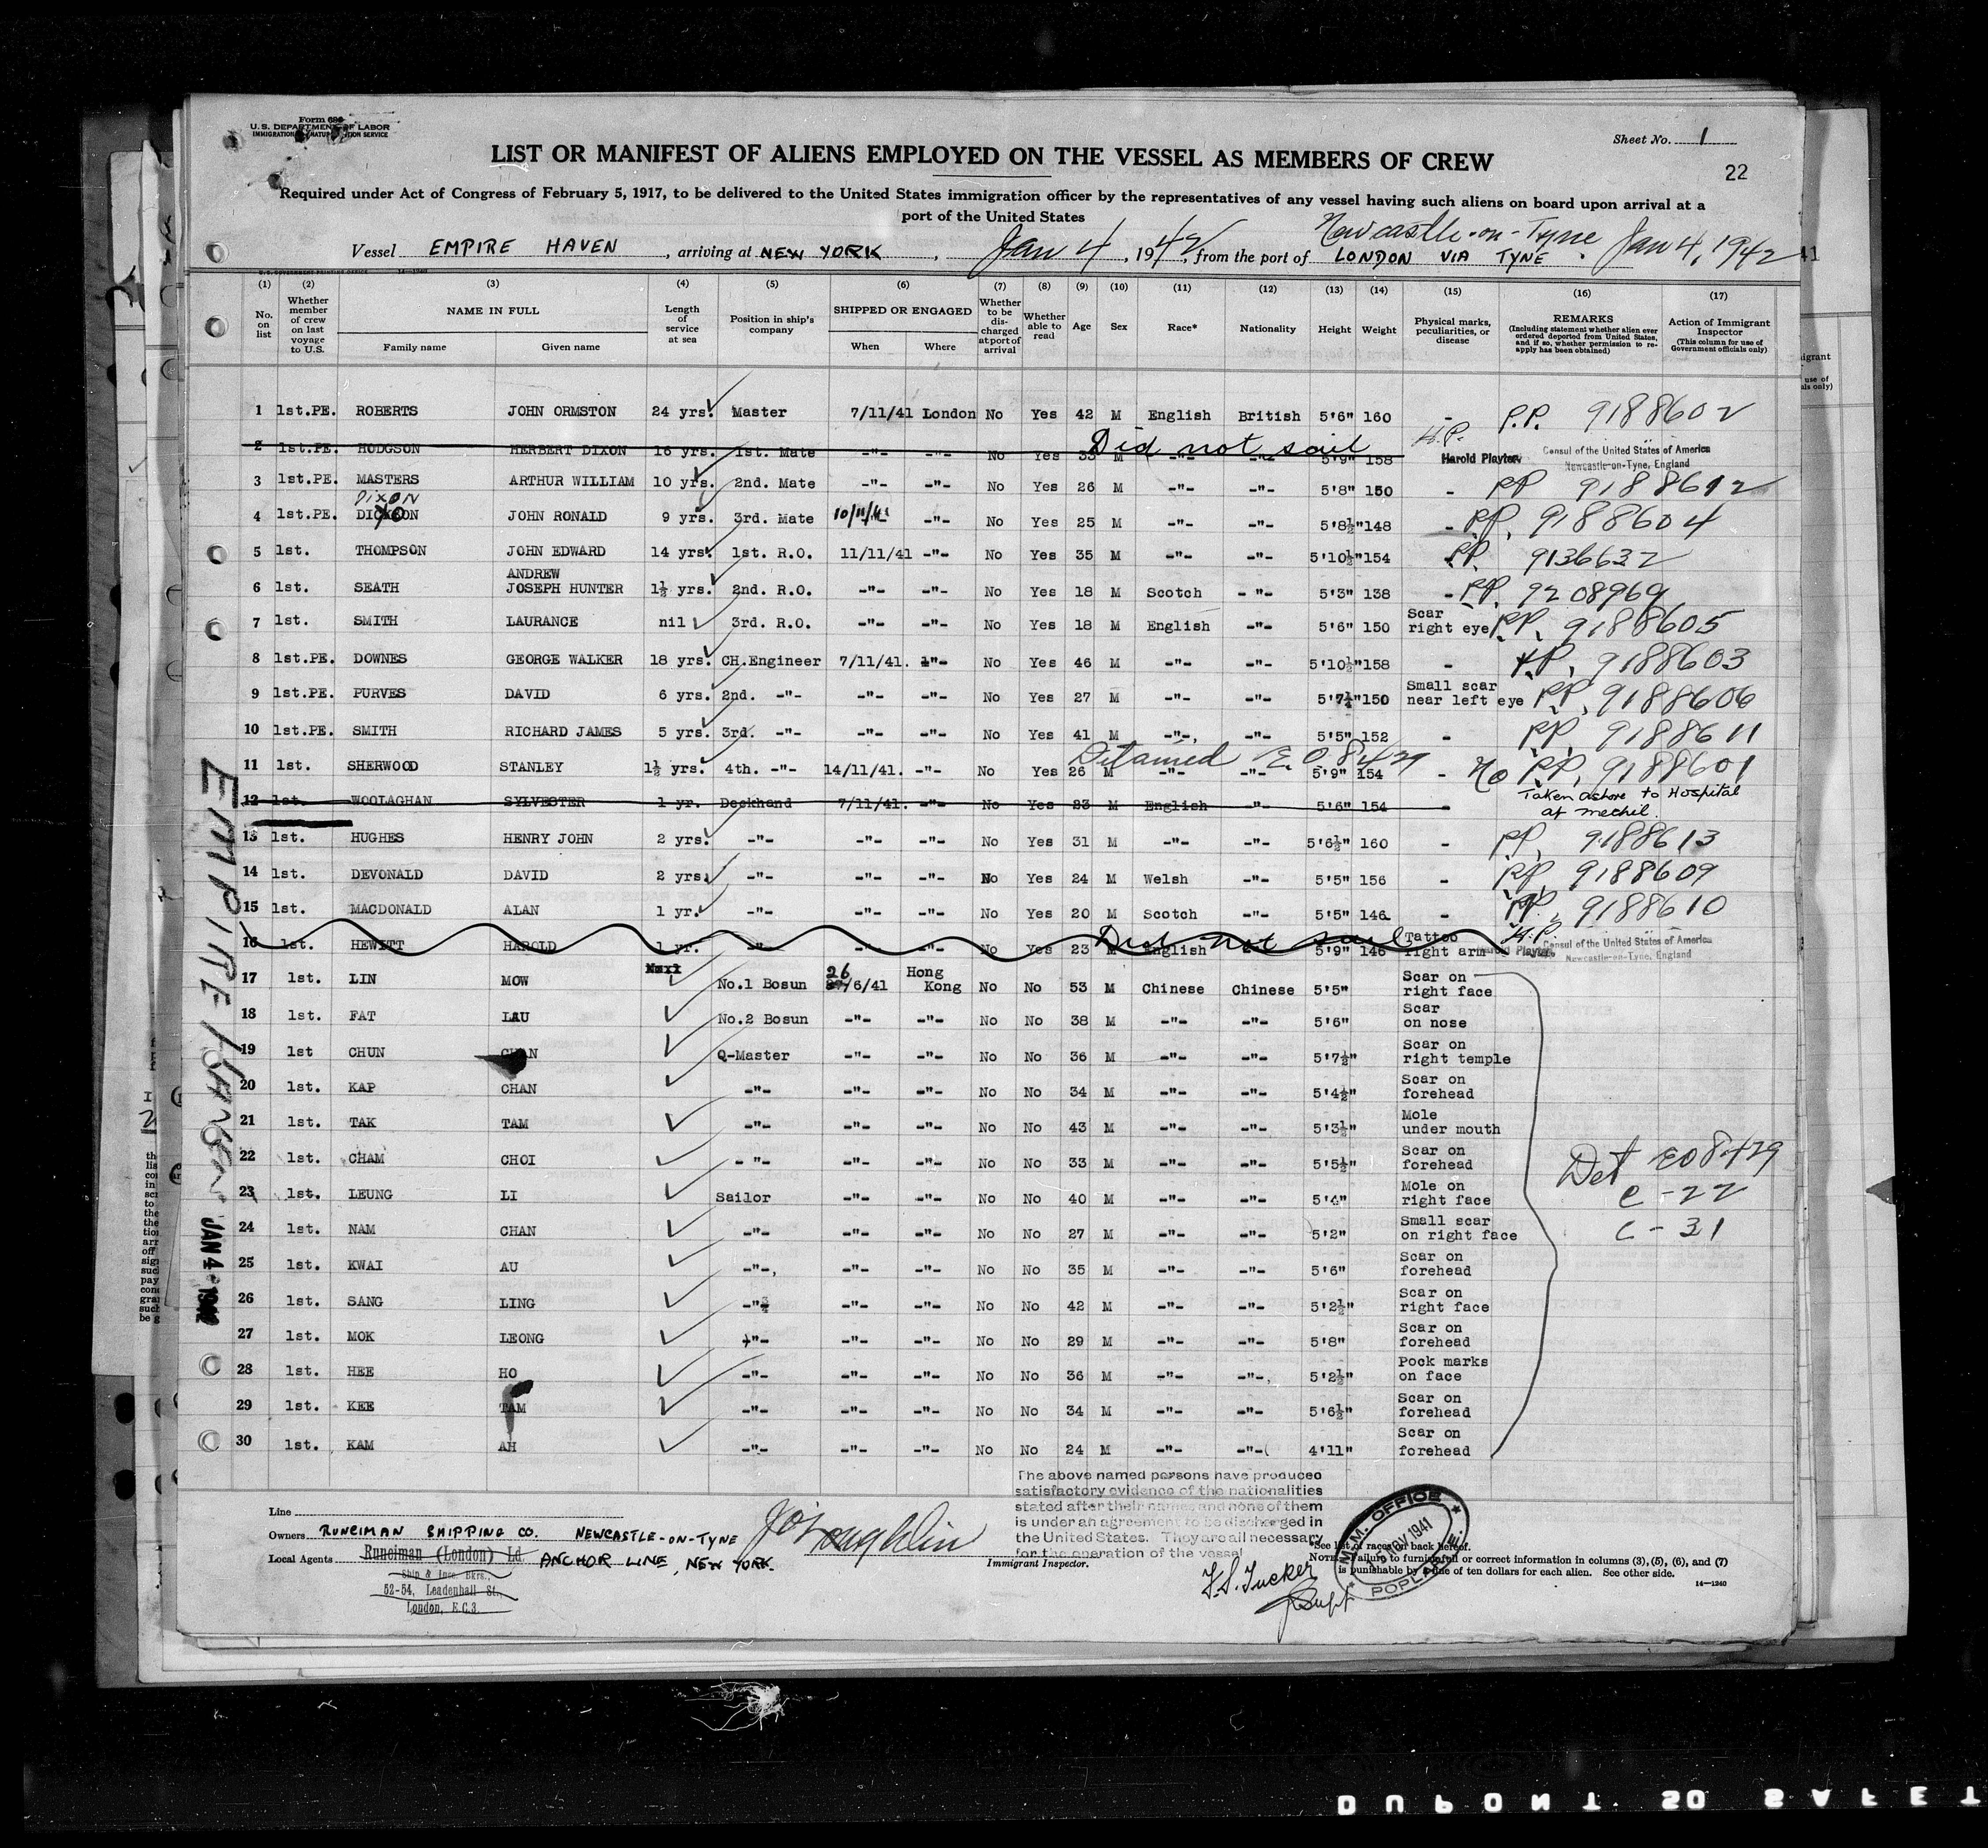 Form 680
U.S. DEPARTMENT OF LABOR
IMMIGRATION NATURALIZATION SERVICE
Sheet No. 1
22
LIST OR MANIFEST OF ALIENS EMPLOYED ON THE VESSEL AS MEMBERS OF CREW
Required under Act of Congress of February 5, 1917, to be delivered to the United States immigration officer by the representatives of any vessel having such aliens on board upon arrival at a
port of the United States
Newcastle-on-Tyne. Jan 4, 1942
Vessel EMPIRE HAVEN, arriving at NEW YORK, Jan 4, 1942, from the port of LONDON VIA TYNE
U.S. GOVERNMENT PRINTING OFFICE 14-1240
(1) (2) (3) (4) (5) (6) (7) (8) (9) (10) (11) (12) (13) (14) (15) (16) (17)
No. on list
Whether member of crew on last voyage to U.S.
NAME IN FULL
Family name
Given name
Length of service at sea
Position in ship's company
SHIPPED OR ENGAGED
When
Where
Whether to be discharged at port of arrival
Whether able to read
Age
Sex
Race*
Nationality
Height
Weight
Physical marks, peculiarities, or disease
REMARKS
(Including statement whether alien ever ordered deported from United States, and if so, whether permission to reapply has been obtained)
Action of Immigrant Inspector
(This column for use of Government officials only)
1 1st.PE. ROBERTS JOHN ORMSTON 24 yrs. Master 7/11/41 London No Yes 42 M English British 5'6" 160 - P.P. 9188602
2 1st.PE. HODGSON HERBERT DIXON 16 yrs. 1st. Mate -"- -"- No Yes 33 M -"- -"- 5'9" 158 Did not sail H.P. Harold Playter. Consul of the United States of America Newcastle-on-Tyne, England
3 1st.PE. MASTERS ARTHUR WILLIAM 10 yrs. 2nd. Mate -"- -"- No Yes 26 M -"- -"- 5'8" 150 - PP 9188612
DIXON
4 1st.PE. DICKSON JOHN RONALD 9 yrs. 3rd. Mate 10/11/41 -"- No Yes 25 M -"- -"- 5'8½" 148 - P.P. 9188604
5 1st. THOMPSON JOHN EDWARD 14 yrs. 1st. R.O. 11/11/41 -"- No Yes 35 M -"- -"- 5'10½" 154 P.P. 9136632
ANDREW
6 1st. SEATH JOSEPH HUNTER 1½ yrs. 2nd. R.O. -"- -"- No Yes 18 M Scotch -"- 5'3" 138 - P.P. 9208969
7 1st. SMITH LAURANCE nil 3rd. R.O. -"- -"- No Yes 18 M English -"- 5'6" 150 Scar right eye P.P. 9188605
8 1st.PE. DOWNES GEORGE WALKER 18 yrs. CH.Engineer 7/11/41. -"- No Yes 46 M -"- -"- 5'10½" 158 - P.P. 9188603
9 1st.PE. PURVES DAVID 6 yrs. 2nd. -"- -"- -"- No Yes 27 M -"- -"- 5'7¼" 150 Small scar near left eye P.P. 9188606
10 1st.PE. SMITH RICHARD JAMES 5 yrs. 3rd. -"- -"- -"- No Yes 41 M -"- -"- 5'5" 152 - P.P. 9188611
11 1st. SHERWOOD STANLEY 1½ yrs. 4th. -"- 14/11/41. -"- No Yes 26 M -"- -"- 5'9" 154 - Detained E.O. 8429 No P.P. 9188601
12 1st. WOOLAGHAN SYLVESTER 1 yr. Deckhand 7/11/41. -"- No Yes 23 M English -"- 5'6" 154 - Taken ashore to Hospital at Methil.
13 1st. HUGHES HENRY JOHN 2 yrs. -"- -"- -"- No Yes 31 M -"- -"- 5'6½" 160 P.P. 9188613
14 1st. DEVONALD DAVID 2 yrs. -"- -"- -"- No Yes 24 M Welsh -"- 5'5" 156 - P.P. 9188609
15 1st. MACDONALD ALAN 1 yr. -"- -"- -"- No Yes 20 M Scotch -"- 5'5" 146 - P.P. 9188610
16 1st. HEWITT HAROLD 1 yr. -"- -"- -"- No Yes 23 M English -"- 5'9" 146 Tattoo right arm Did not sail H.P. Harold Playter. Consul of the United States of America Newcastle-on-Tyne, England
17 1st. LIN MOW No.1 Bosun 26/6/41 Hong Kong No No 53 M Chinese Chinese 5'5" Scar on right face
18 1st. FAT LAU No.2 Bosun -"- -"- No No 38 M -"- -"- 5'6" Scar on nose
19 1st CHUN CHAN Q-Master -"- -"- No No 36 M -"- -"- 5'7½" Scar on right temple
20 1st. KAP CHAN -"- -"- -"- No No 34 M -"- -"- 5'4½" Scar on forehead
21 1st. TAK TAM -"- -"- -"- No No 43 M -"- -"- 5'3½" Mole under mouth
22 1st. CHAM CHOI -"- -"- -"- No No 33 M -"- -"- 5'5½" Scar on forehead
23 1st. LEUNG LI Sailor -"- -"- No No 40 M -"- -"- 5'4" Mole on right face
24 1st. NAM CHAN -"- -"- -"- No No 27 M -"- -"- 5'2" Small scar on right face
25 1st. KWAI AU -"- -"- -"- No No 35 M -"- -"- 5'6" Scar on forehead
26 1st. SANG LING -"- -"- -"- No No 42 M -"- -"- 5'2½" Scar on right face
27 1st. MOK LEONG -"- -"- -"- No No 29 M -"- -"- 5'8" Scar on forehead
28 1st. HEE HO -"- -"- -"- No No 36 M -"- -"- 5'2½" Pock marks on face
29 1st. KEE TAM -"- -"- -"- No No 34 M -"- -"- 5'6½" Scar on forehead
30 1st. KAM AH -"- -"- -"- No No 24 M -"- -"- 4'11" Scar on forehead
Det EO 8429
C - 22
C - 31
EMPIRE HAVEN
JAN 4 - 1942
The above named persons have produced
satisfactory evidence of the nationalities
stated after their names and none of them
is under an agreement to be discharged in
the United States. They are all necessary
for the operation of the vessel
Line
Owners RUNCIMAN SHIPPING CO. NEWCASTLE-ON-TYNE
Local Agents Runciman (London) Ld ANCHOR LINE, NEW YORK.
Ship & Insce. Bkrs.,
52-54, Leadenhall St.,
London, E.C.3.
Immigrant Inspector.
F.S. Tucker
Supt
M.M. OFFICE
15 NOV 1941
POPLAR E.
*See list of races on back hereof.
NOTE.—Failure to furnish full or correct information in columns (3), (5), (6), and (7)
is punishable by a fine of ten dollars for each alien. See other side.
14-1240
DUPONT SAFET